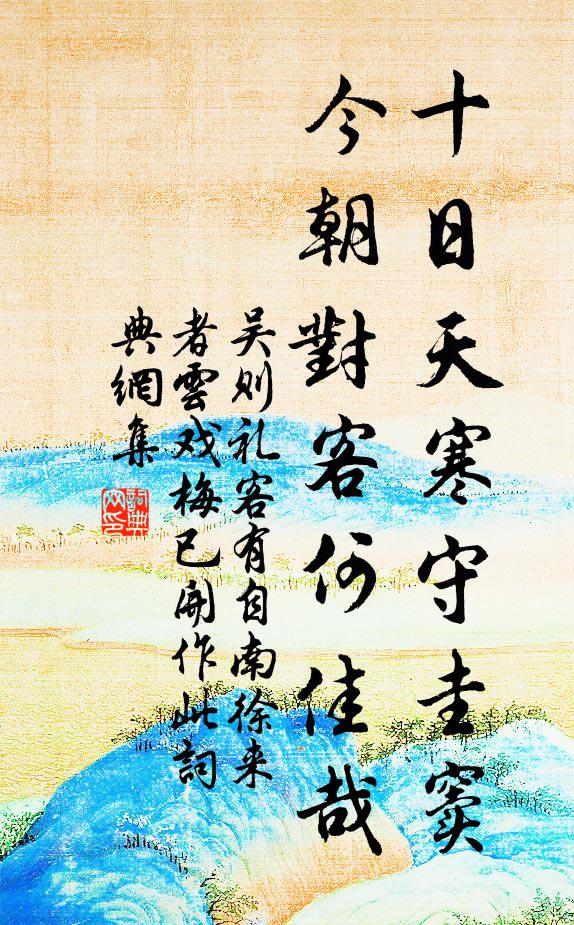 十日天寒守圭竇
今朝對客何佳哉
吴则礼客有自南徐来
者雲戏梅已開作此詞
典網集